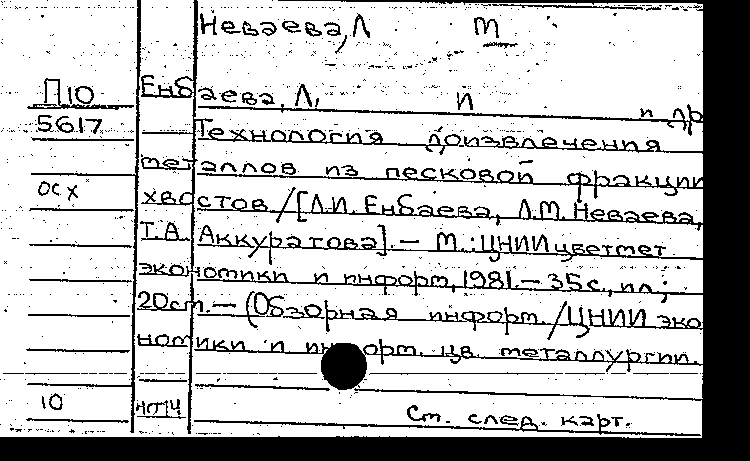 Неваева, Л М
П10 Енбаева, Л, И и др
5617 Технология доизвлечения
металлов из песковой фракции
осх хвостов /[Л.И. Енбаева, Л.М. Неваева,
Т.А. Аккуратова]. — М.: ЦНИИцветмет
экономики и информ, 1981. — 35с., ил;
20см. — (Обзорная информ. /ЦНИИ эко
номики и информ. цв. металлургии.
10 Ст. след. карт.